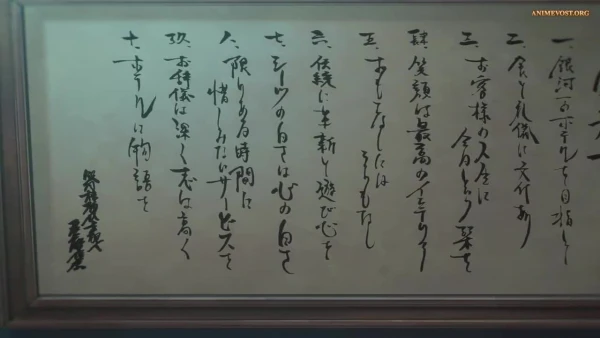 一、銀河一のホテルを目指して
二、礼儀に
三、お客様の人生に
今日という栞を
肆、笑顔は最高のインテリア
五、おもてなしは
うらもなし
六、伝統に革新と遊び心を
七、シーツの白さは心の白さ
八、限りある時間に
惜しみないサービスを
玖、お辞儀は深く志は高く
十、ホテルに物語を
ANIMEVOST.ORG